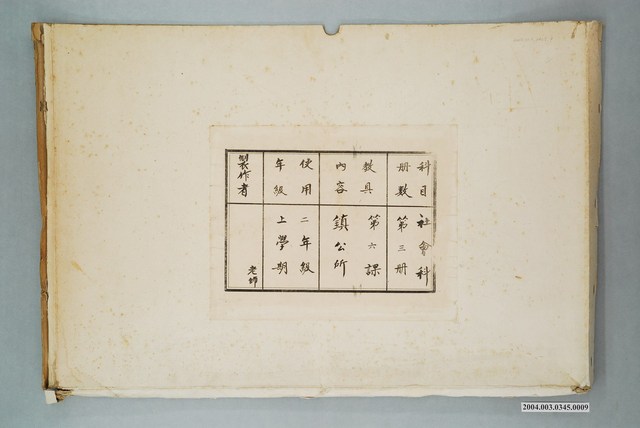 科目
冊數
社會科
第三冊
教具
內容
第六課
鎮公所
使用
年級
二年級
上學期
製作者
老師
2004.003.0345.0009